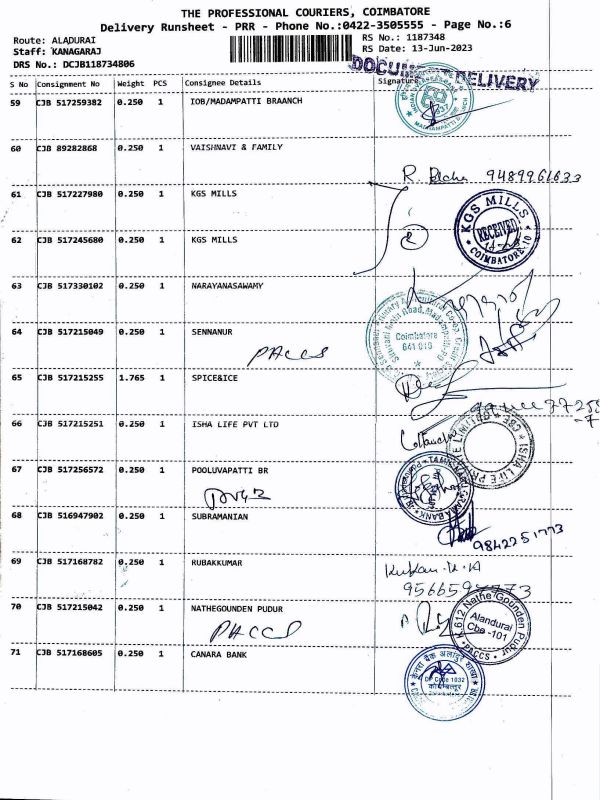 THE PROFESSIONAL COURIERS, COIMBATORE
Delivery Runsheet - PRR - Phone No.:0422-3505555 - Page No.:6
Route: ALADURAI
RS No.: 1187348
Staff: KANAGARAJ
RS Date: 13-Jun-2023
DRS No.: DCJB118734806
DOCUMENT DELIVERY
S No Consignment No Weight PCS Consignee Details Signature
59 CJB 517259382 0.250 1 IOB/MADAMPATTI BRAANCH
60 CJB 89282868 0.250 1 VAISHNAVI & FAMILY
9489961633
61 CJB 517227980 0.250 1 KGS MILLS
KGS MILLS
RECEIVED
COIMBATORE-10
62 CJB 517245680 0.250 1 KGS MILLS
2
63 CJB 517330102 0.250 1 NARAYANASAWAMY
64 CJB 517215049 0.250 1 SENNANUR
Coimbatore
641 010
PACCS
65 CJB 517215255 1.765 1 SPICE&ICE
66 CJB 517215251 0.250 1 ISHA LIFE PVT LTD
ISHA LIFE PRIVATE LIMITED * CBE *
67 CJB 517256572 0.250 1 POOLUVAPATTI BR
68 CJB 516947902 0.250 1 SUBRAMANIAN
9842251773
69 CJB 517168782 0.250 1 RUBAKKUMAR
70 CJB 517215042 0.250 1 NATHEGOUNDEN PUDUR
PACCS
K.612 Nathe Gounden Pudur
Alandurai
Cbe -101
PACCS
71 CJB 517168605 0.250 1 CANARA BANK
DP Code 1032